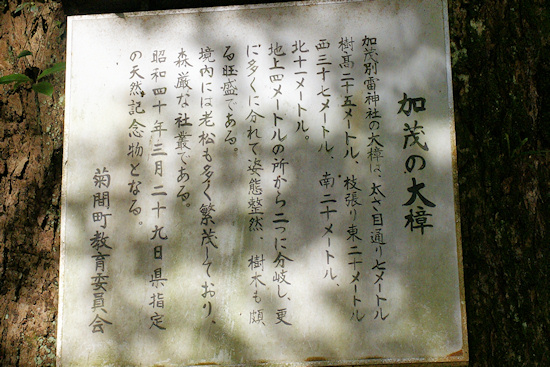 加茂の大樟
加茂別雷神社の大樟は、太さ目通り七メートル
樹高二十五メートル、枝張り東二十メートル
西三十七メートル、南二十メートル、
北十一メートル。
地上四メートルの所から二つに分岐し、更
に多くに分れて姿態整然、樹木も頗
る旺盛である。
境内には老松も多く繁茂しており、
森厳な社叢である。
昭和四十年三月二十九日県指定
の天然記念物となる。
菊間町教育委員会